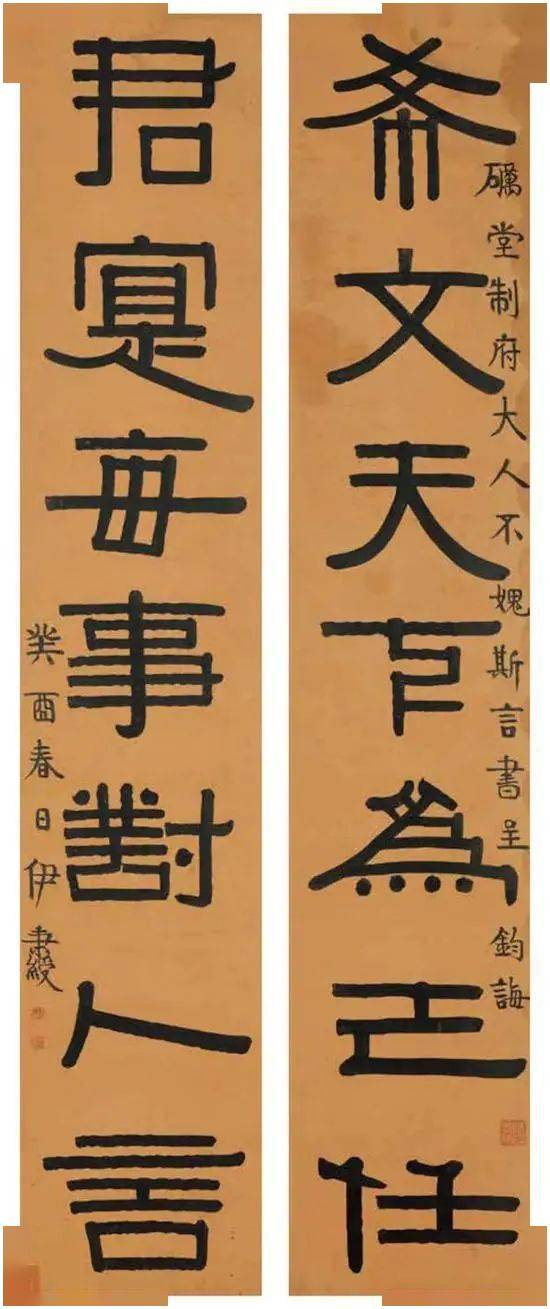 希文天下為己任
礪堂制府大人不媿斯言書呈 鈞誨
君寔每事對人言
癸酉春日伊秉綬